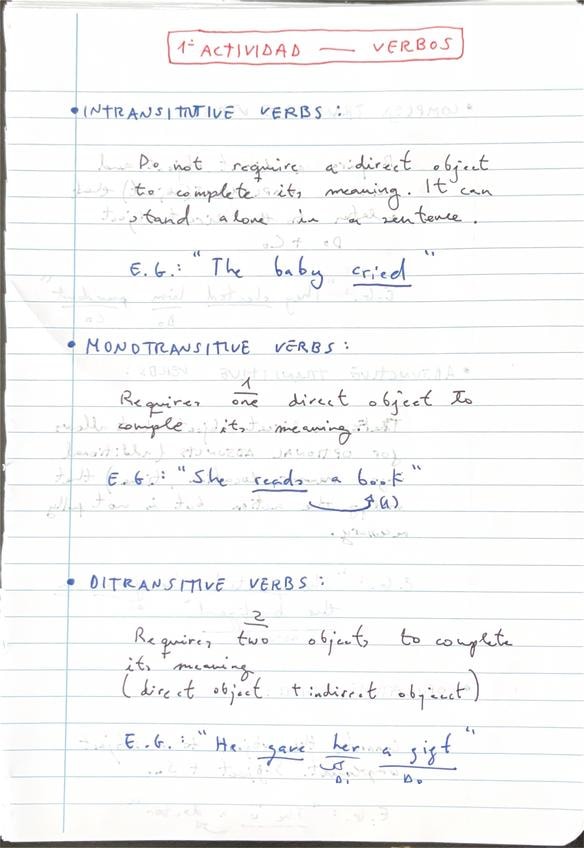 1ª ACTIVIDAD — VERBOS
• INTRANSITITIVE VERBS:
Do not require a direct object
to complete its meaning. It can
stand alone in a sentence.
E.G.: "The baby cried"
• MONOTRANSITIVE VERBS:
1
Requires one direct object to
comple its meaning.
E.G: "She reads a book"
(1)
• DITRANSITIVE VERBS:
2
Requires two objects to complete
its meaning
(direct object + indirect object)
E.G.: "He gave her a gift"
Do